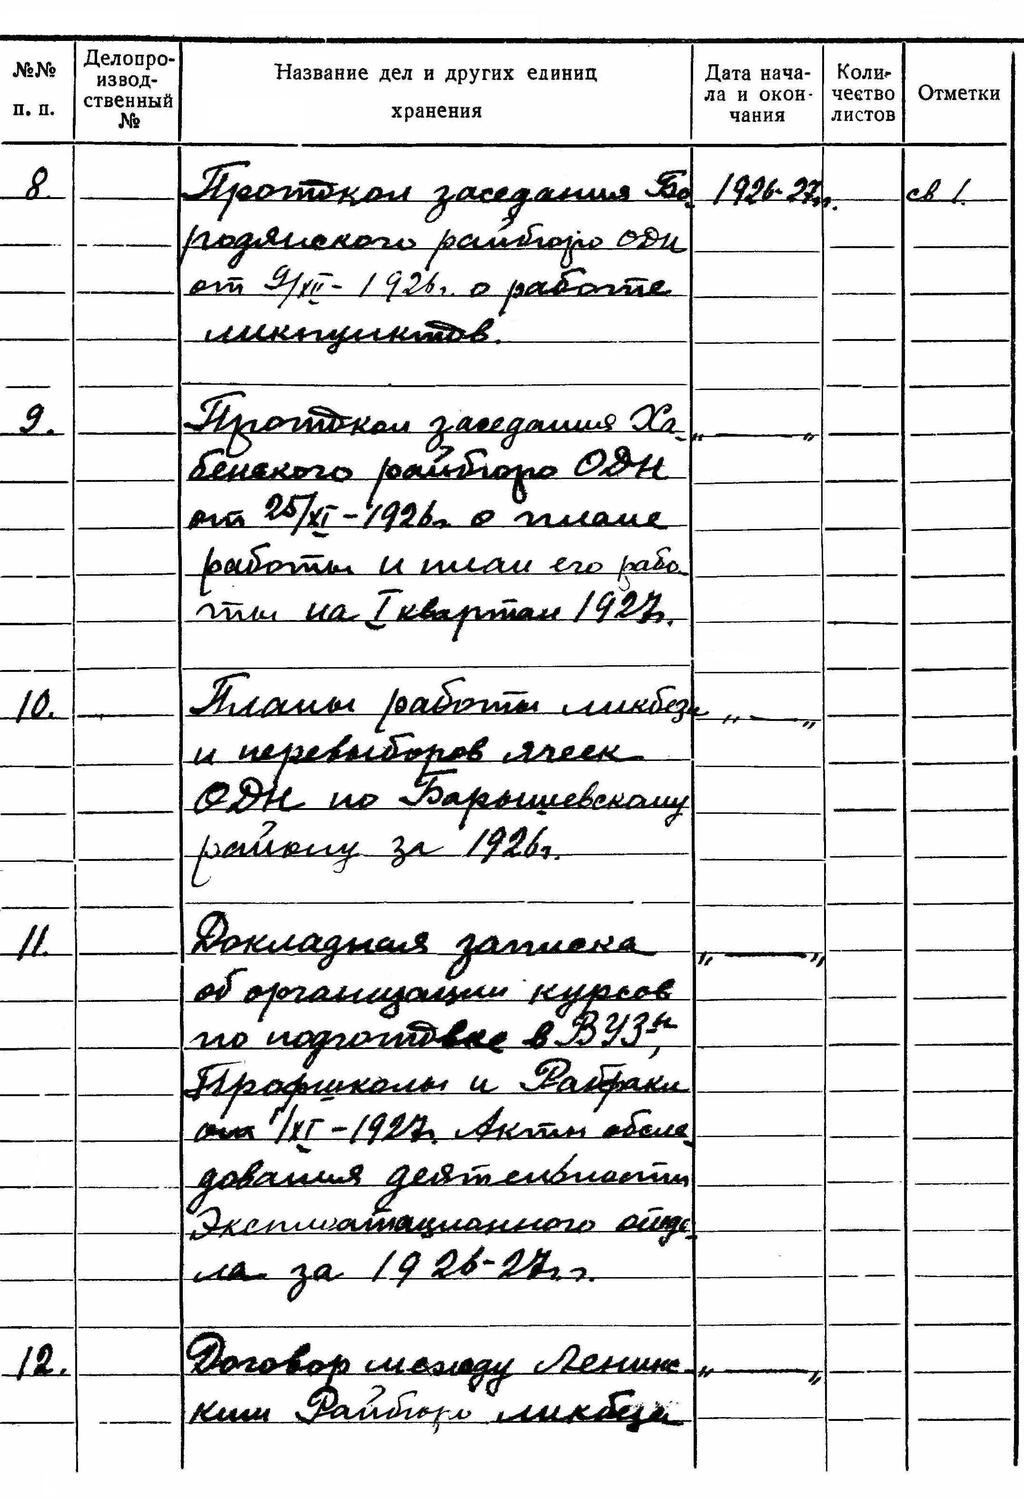 №№ п. п.
Делопро-
извод-
ственный
№
Название дел и других единиц
хранения
Дата нача-
ла и окон-
чания
Коли-
чество
листов
Отметки
8. Протокол заседания Бо- 1926-27гг. св 1.
родянского райбюро ОДН
от 9/XII - 1926г. о работе
ликпунктов.
9. Протокол заседания Ха- „ — „
бенского райбюро ОДН
от 25/XI - 1926г. о плане
работы и план его рабо-
ты на I квартал 1927г.
10. Планы работы ликбеза „ — „
и перевыборов ячеек
ОДН по Барышевскому
району за 1926г.
11. Докладная записка „ — „
об организации курсов
по подготовке в ВУЗы,
Профшколы и Рабфаки
от 1/XI - 1927г. Акты обсле-
дования деятельности
Эксплоатационного отде-
ла за 1926-27гг.
12. Договор между Ленинс- „ — „
ким Райбюро ликбеза